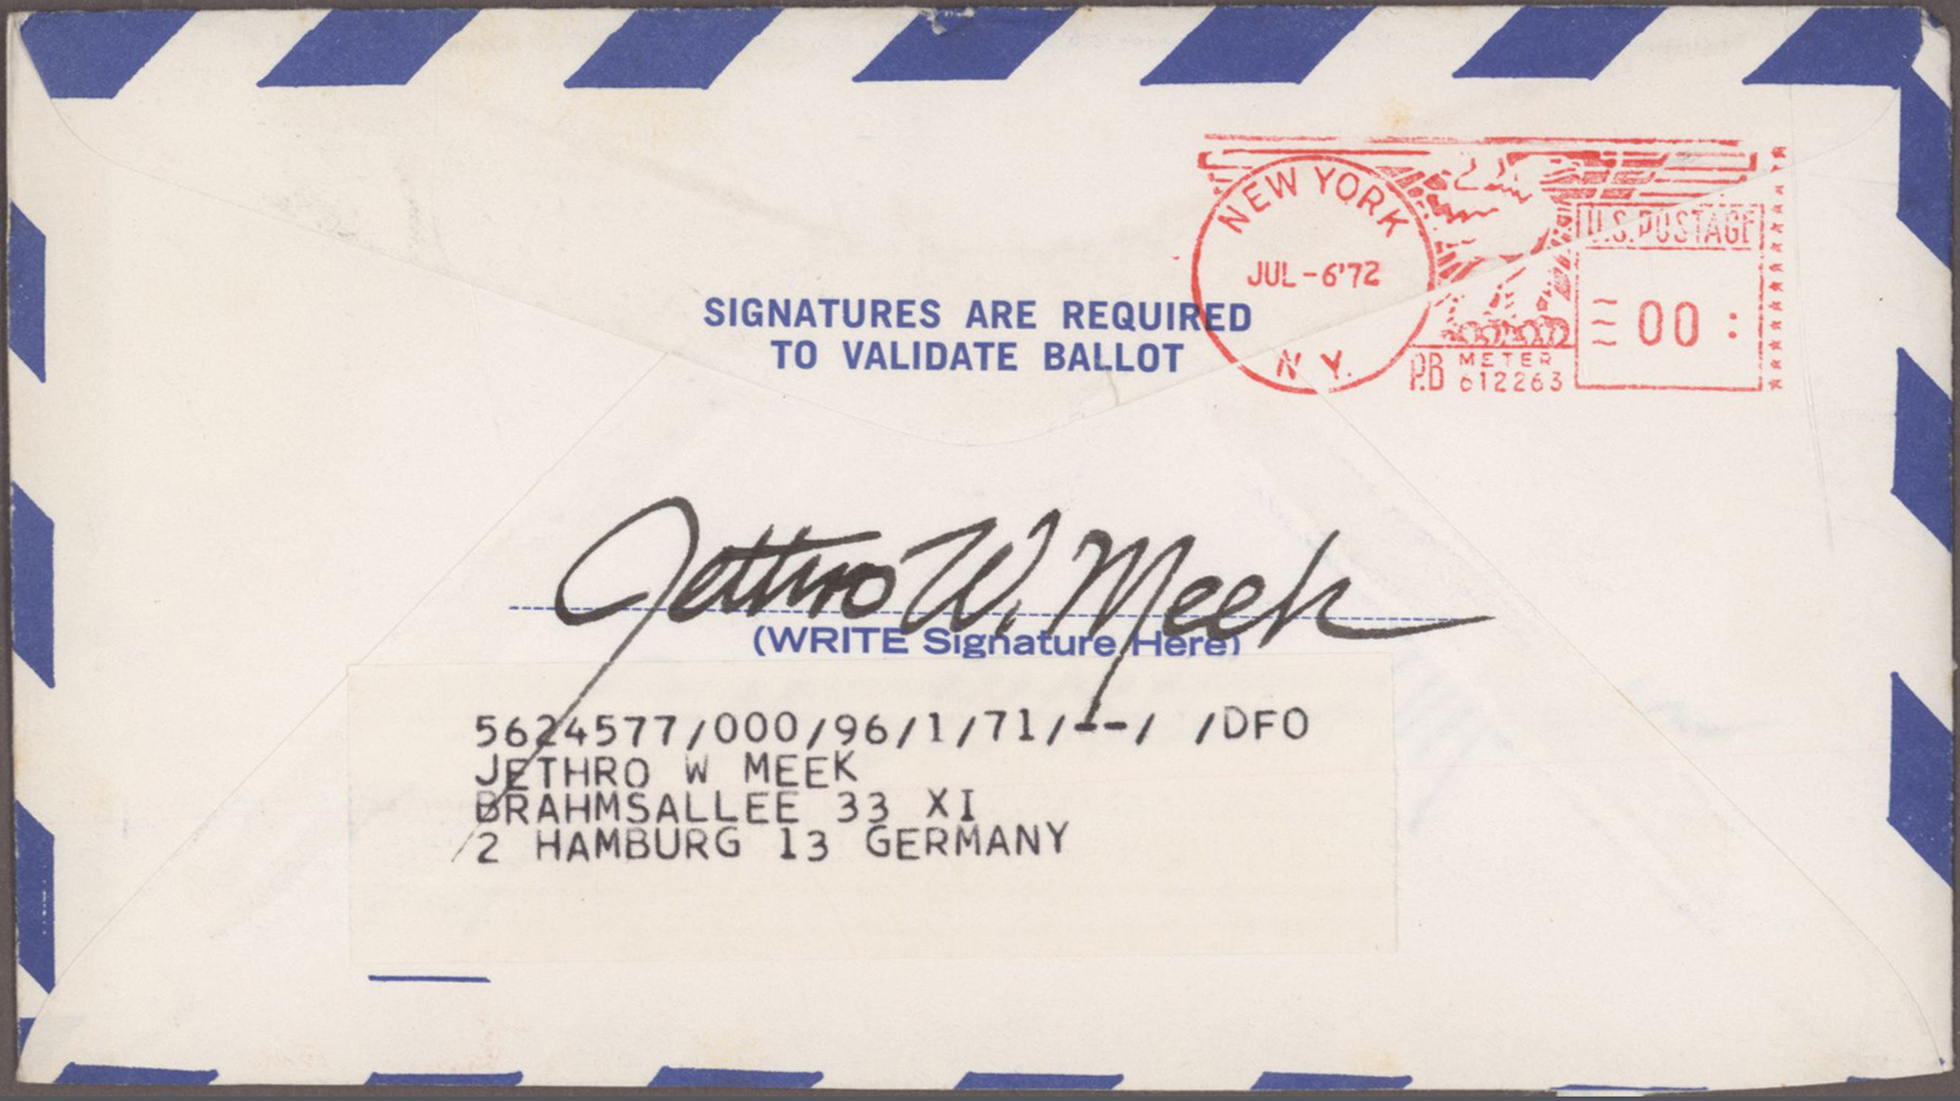 NEW YORK
JUL-6'72
N.Y.
U.S. POSTAGE
00
P.B. METER
612263
SIGNATURES ARE REQUIRED
TO VALIDATE BALLOT
Jethro W. Meek
(WRITE Signature Here)
5624577/000/96/1/71/--/ /DFO
JETHRO W MEEK
BRAHMSALLEE 33 XI
2 HAMBURG 13 GERMANY